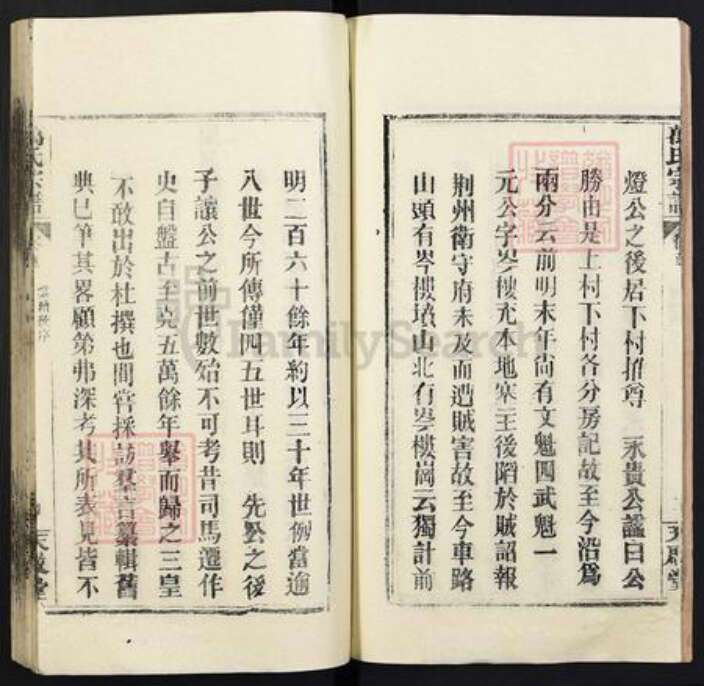 燈公之後居下村招尊 永貴公謚曰公
勝由是上村下村各分房記故至今沿為
兩分云前明末年尚有文魁四武魁一
元公字岑樓充本地寨主後陷於賊詔報
荆州衛守府未及而遭賊害故至今車路
山頭有岑樓墳山北有岑樓崗云獨計前
明二百六十餘年約以三十年世例當逾
八世今所傳僅四五世耳則 先 公之後
子讓公之前世數殆不可考昔司馬遷作
史自盤古至堯五萬餘年舉而歸之三皇
不敢出於杜撰也間嘗採訪羣言纂輯舊
典已筆其畧顧第弗深考其所表見皆不
氏宗譜
天啟堂
FamilySearch